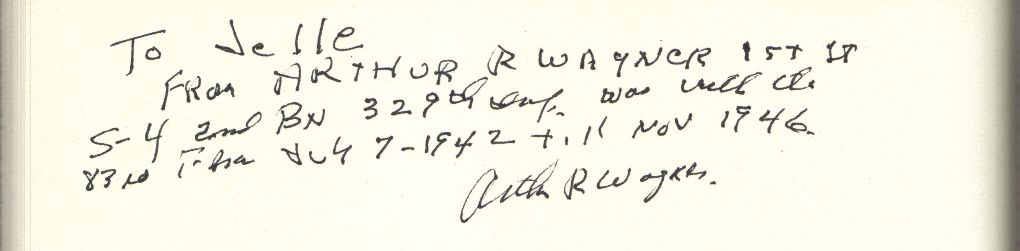 To Jelle
FROM ARTHUR R WAYNER 1ST LT
S-4 2nd BN 329th Inf. was with the
83rd From July 7-1942 till NOV 1946.
Arthur R Wayner.